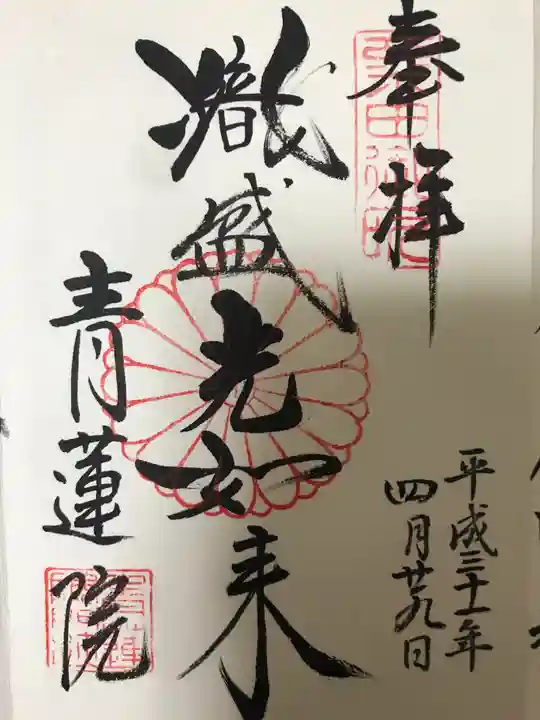 奉拝
熾盛光如来
青蓮院
平成三十一年
四月廿九日